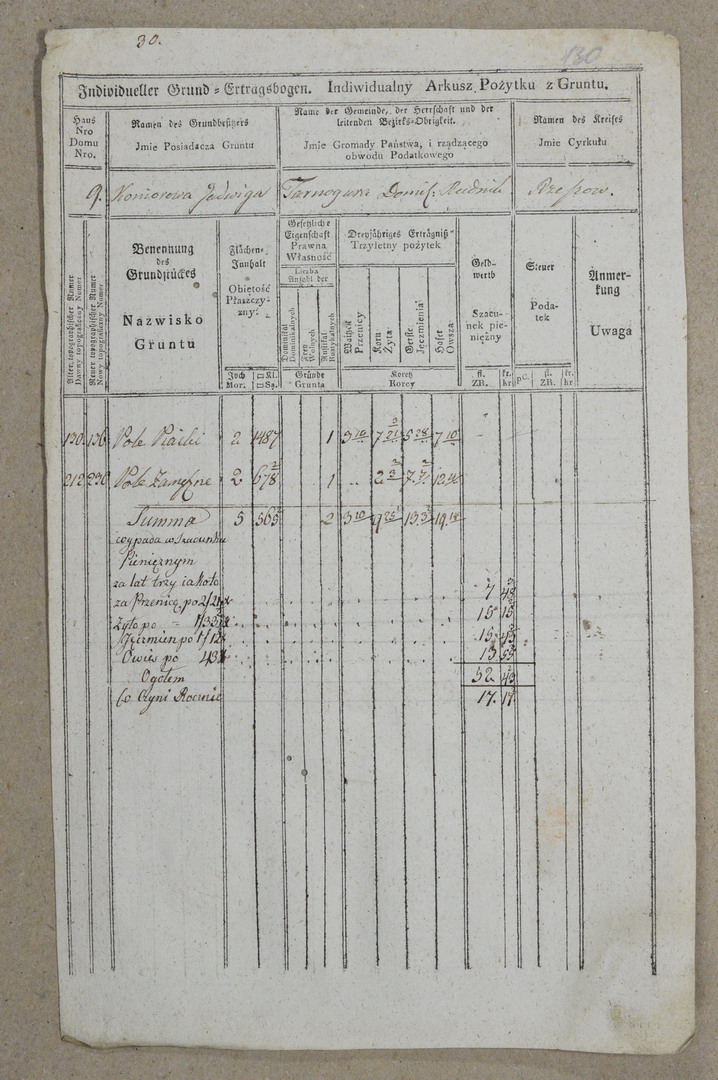 30.
130
Individueller Grund-Ertragsbogen. Indiwidualny Arkusz Pożytku z Gruntu.
Haus Nro Domu Nro.
Namen des Grundbesitzers
Jmie Posiadacza Gruntu
Name der Gemeinde, der Herrschaft und der
leitenden Bezirks-Obrigkeit.
Jmie Gromady Państwa, i rządzącego
obwodu Podatkowego
Namen des Kreises
Jmie Cyrkułu
9. Komorowa Jadwiga Tarnogura Domi: Rudnik Rzeszow.
Alter topographischer Numer
Dawny topograficzny Numer
Neuer topographischer Numer
Nowy topograficzny Numer
Benennung
des
Grundstückes
Nazwisko
Gruntu
Flächen-
Innhalt
Obiętość
Płaszczyzny:
Joch Mor.
□Kl. □Są.
Gesetzliche
Eigenschaft
Prawna
Własność
Liczba
Anzahl der
Dominikal
Dominikalnych
Frey
Wolnych
Rustikal
Rustykalnych
Gründe
Grunta
Dreyjähriges Erträgniß
Trzyletny pożytek
Waitzen
Przenicy
Korn
Żyta
Gerste
Jęczmienia
Hafer
Owsa
Koretz
Korcy
Geld-
werth
Szacu-
nek pie-
niężny
fl. ZR.
kr. kr
Steuer
Poda-
tek
pC.
fl. ZR.
kr. kr
Anmer-
kung
Uwaga
130 136 Pole Piaski 2 1487 1 3 10 7 21 5 28 7 10
212 230 Pole 2 678 1 .. 2 3 7.
Summa 5 565 2 3 10 9 25 13. 3 19.
wypada w Szacunku
Pieniężnym
za lat trzy iakoto
za Przenicę po 2/ 7 48
Żyto po = 1/35 15 15
Jęczmien po 1/12 15 45
Owies po 43 13 55
Ogołem 52 43
Co Czyni Rocznie 17. 17